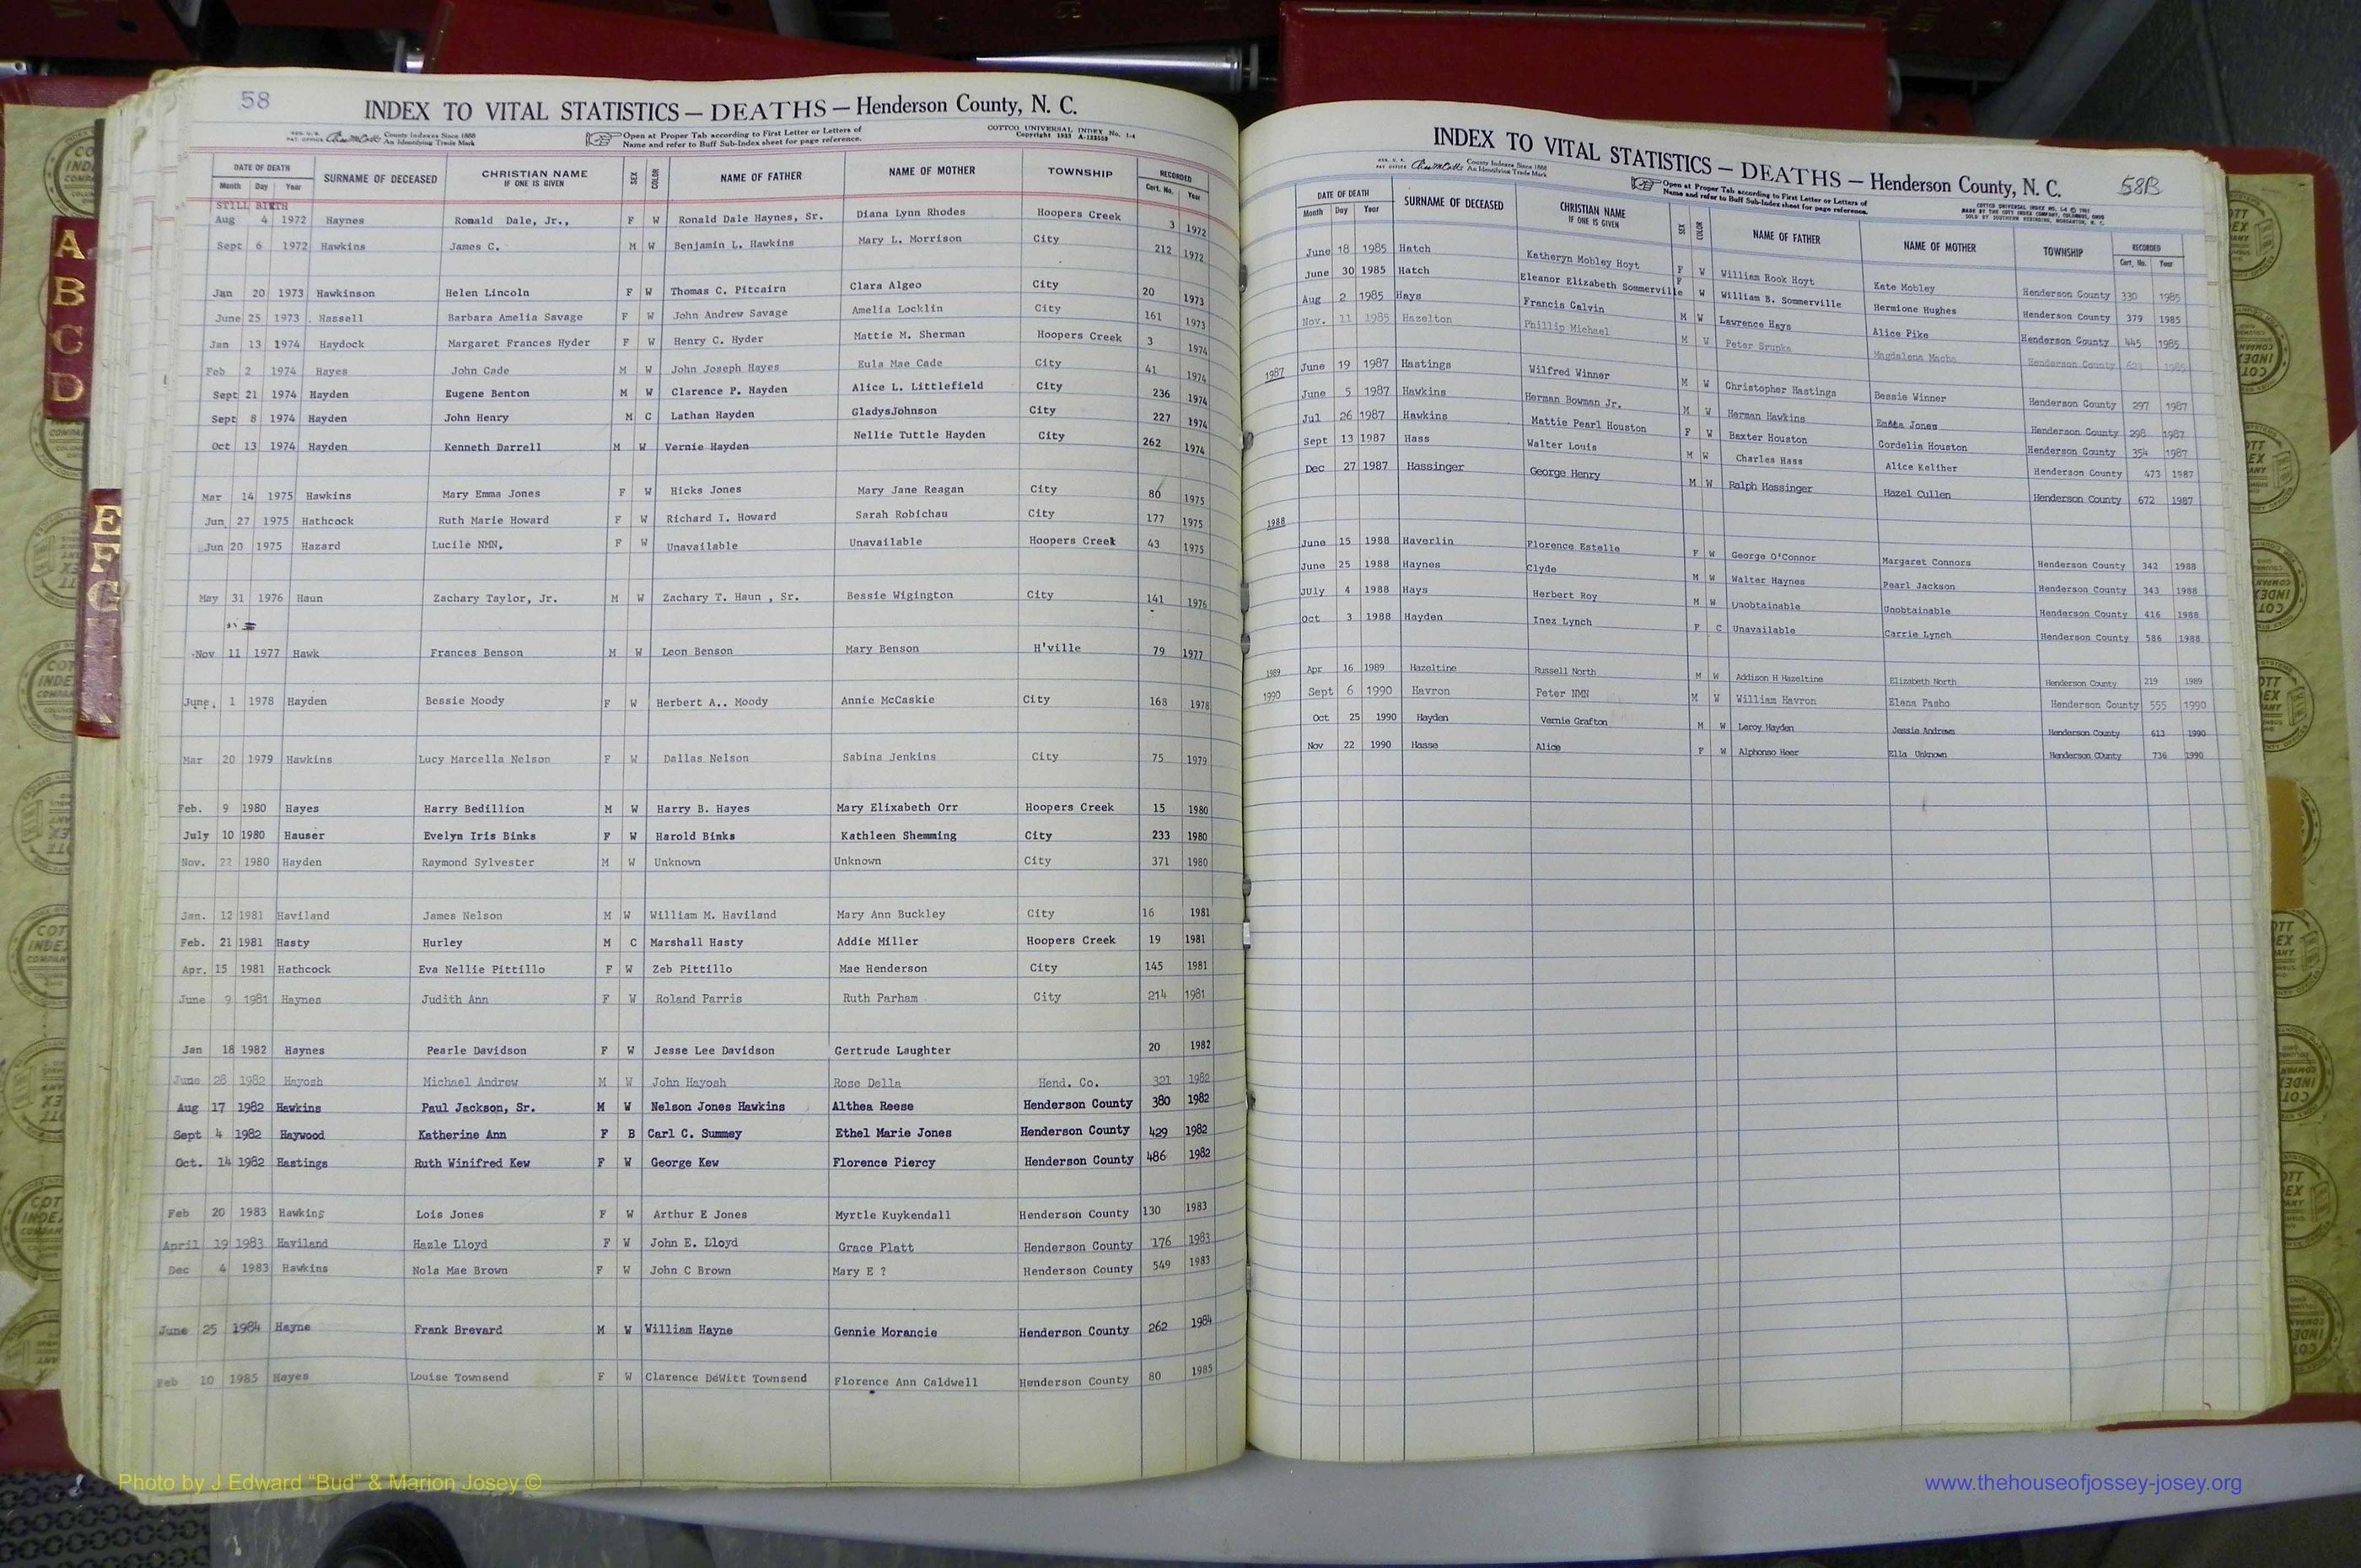 58
INDEX TO VITAL STATISTICS — DEATHS — Henderson County, N. C.
County Indexes Since 1888
An Identifying Trade Mark
Open at Proper Tab according to First Letter or Letters of
Name and refer to Buff Sub-Index sheet for page reference.
COTTCO UNIVERSAL INDEX No. 1-4
DATE OF DEATH SURNAME OF DECEASED CHRISTIAN NAME IF ONE IS GIVEN SEX COLOR NAME OF FATHER NAME OF MOTHER TOWNSHIP RECORDED
Month Day Year Cert. No. Year
STILL BIRTH
Aug 4 1972 Haynes Ronald Dale, Jr., F W Ronald Dale Haynes, Sr. Diana Lynn Rhodes Hoopers Creek 3 1972
Sept 6 1972 Hawkins James C. M W Benjamin L. Hawkins Mary L. Morrison City 212 1972
Jan 20 1973 Hawkinson Helen Lincoln F W Thomas C. Pitcairn Clara Algeo City 20 1973
June 25 1973 Hassell Barbara Amelia Savage F W John Andrew Savage Amelia Locklin City 161 1973
Jan 13 1974 Haydock Margaret Frances Hyder F W Henry C. Hyder Mattie M. Sherman Hoopers Creek 3 1974
Feb 2 1974 Hayes John Cade M W John Joseph Hayes Eula Mae Cade City 41 1974
Sept 21 1974 Hayden Eugene Benton M W Clarence P. Hayden Alice L. Littlefield City 236 1974
Sept 8 1974 Hayden John Henry M C Lathan Hayden GladysJohnson City 227 1974
Oct 13 1974 Hayden Kenneth Darrell M W Vernie Hayden Nellie Tuttle Hayden City 262 1974
Mar 14 1975 Hawkins Mary Emma Jones F W Hicks Jones Mary Jane Reagan City 80 1975
Jun 27 1975 Hathcock Ruth Marie Howard F W Richard I. Howard Sarah Robichau City 177 1975
Jun 20 1975 Hazard Lucile NMN, F W Unavailable Unavailable Hoopers Creek 43 1975
May 31 1976 Haun Zachary Taylor, Jr. M W Zachary T. Haun , Sr. Bessie Wigington City 141 1976
Nov 11 1977 Hawk Frances Benson M W Leon Benson Mary Benson H'ville 79 1977
June, 1 1978 Hayden Bessie Moody F W Herbert A.. Moody Annie McCaskie City 168 1978
Mar 20 1979 Hawkins Lucy Marcella Nelson F W Dallas Nelson Sabina Jenkins City 75 1979
Feb. 9 1980 Hayes Harry Bedillion M W Harry B. Hayes Mary Elixabeth Orr Hoopers Creek 15 1980
July 10 1980 Hauser Evelyn Iris Binks F W Harold Binks Kathleen Shemming City 233 1980
Nov. 22 1980 Hayden Raymond Sylvester M W Unknown Unknown City 371 1980
Jan. 12 1981 Haviland James Nelson M W William M. Haviland Mary Ann Buckley City 16 1981
Feb. 21 1981 Hasty Hurley M C Marshall Hasty Addie Miller Hoopers Creek 19 1981
Apr. 15 1981 Hathcock Eva Nellie Pittillo F W Zeb Pittillo Mae Henderson City 145 1981
June 9 1981 Haynes Judith Ann F W Roland Parris Ruth Parham City 214 1981
Jan 18 1982 Haynes Pearle Davidson F W Jesse Lee Davidson Gertrude Laughter 20 1982
June 28 1982 Hayosh Michael Andrew M W John Hayosh Rose Della Hend. Co. 321 1982
Aug 17 1982 Hawkins Paul Jackson, Sr. M W Nelson Jones Hawkins Althea Reese Henderson County 380 1982
Sept 4 1982 Haywood Katherine Ann F B Carl C. Summey Ethel Marie Jones Henderson County 429 1982
Oct. 14 1982 Hastings Ruth Winifred Kew F W George Kew Florence Piercy Henderson County 486 1982
Feb 20 1983 Hawkins Lois Jones F W Arthur E Jones Myrtle Kuykendall Henderson County 130 1983
April 19 1983 Haviland Hazle Lloyd F W John E. Lloyd Grace Platt Henderson County 176 1983
Dec 4 1983 Hawkins Nola Mae Brown F W John C Brown Mary E ? Henderson County 549 1983
June 25 1984 Hayne Frank Brevard M W William Hayne Gennie Morancie Henderson County 262 1984
Feb 10 1985 Hayes Louise Townsend F W Clarence DeWitt Townsend Florence Ann Caldwell Henderson County 80 1985
58B
INDEX TO VITAL STATISTICS — DEATHS — Henderson County, N. C.
County Indexes Since 1888
An Identifying Trade Mark
Open at Proper Tab according to First Letter or Letters of
Name and refer to Buff Sub-Index sheet for page reference.
DATE OF DEATH SURNAME OF DECEASED CHRISTIAN NAME IF ONE IS GIVEN SEX COLOR NAME OF FATHER NAME OF MOTHER TOWNSHIP RECORDED
Month Day Year Cert. No. Year
June 18 1985 Hatch Katheryn Mobley Hoyt F W William Rook Hoyt Kate Mobley Henderson County 330 1985
June 30 1985 Hatch Eleanor Elizabeth Sommerville F W William B. Sommerville Hermione Hughes Henderson County 379 1985
Aug 2 1985 Hays Francis Calvin M W Lawrence Hays Alice Pike Henderson County 445 1985
Nov. 11 1985 Hazelton Phillip Michael M W Peter Magdalena Henderson County 1985
1987 June 19 1987 Hastings Wilfred Winner M W Christopher Hastings Bessie Winner Henderson County 297 1987
June 5 1987 Hawkins Herman Bowman Jr. M W Herman Hawkins Jones Henderson County 298 1987
Jul 26 1987 Hawkins Mattie Pearl Houston F W Baxter Houston Cordelia Houston Henderson County 354 1987
Sept 13 1987 Hass Walter Louis M W Charles Hass Alice Keliher Henderson County 473 1987
Dec 27 1987 Hassinger George Henry M W Ralph Hassinger Hazel Cullen Henderson County 672 1987
1988
June 15 1988 Haverlin Florence Estelle F W George O'Connor Margaret Connors Henderson County 342 1988
June 25 1988 Haynes Clyde M W Walter Haynes Pearl Jackson Henderson County 343 1988
July 4 1988 Hays Herbert Roy M W Unobtainable Unobtainable Henderson County 416 1988
Oct 3 1988 Hayden Inez Lynch F C Unavailable Carrie Lynch Henderson County 586 1988
1989 Apr 16 1989 Hazeltine Russell North M W Addison H Hazeltine Elizabeth North Henderson County 219 1989
1990 Sept 6 1990 Havron Peter NMN M W William Havron Elena Pasho Henderson County 555 1990
Oct 25 1990 Hayden Vernie Grafton M W Leroy Hayden Jessie Andrews Henderson County 613 1990
Nov 22 1990 Hasse Alice F W Alphonso Heer Ella Unknown Henderson County 736 1990
A
B
C
D
E
F
G
Photo by J Edward “Bud” & Marion Josey ©
www.thehouseofjossey-josey.org